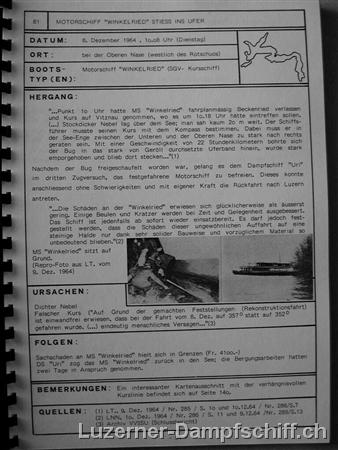 81 MOTORSCHIFF "WINKELRIED" STIESS INS UFER
DATUM: 8. Dezember 1964 , 10.08 Uhr (Dienstag)
ORT: bei der Oberen Nase (westlich des Rotschuos)
BOOTS- Motorschiff "WINKELRIED" (SGV- Kursschiff)
TYP(EN):
HERGANG:
"...Punkt 10 Uhr hatte MS "Winkelried" fahrplanmässig Beckenried verlassen
und Kurs auf Vitznau genommen, wo es um 10.18 Uhr hätte eintreffen sollen.
(...) Stockdicker Nebel lag über dem See; man sah kaum 20 m weit. Der Schiffs-
führer musste seinen Kurs mit dem Kompass bestimmen. Dabei muss er in
der See-Enge zwischen der Unteren und der Oberen Nase zu stark nach rechts
geraten sein. Mit einer Geschwindigkeit von 22 Stundenkilometern bohrte sich
der Bug in das stark von Geröll durchsetzte Uferband hinein, wurde stark
emporgehoben und blieb dort stecken..."(1)
Nachdem der Bug freigeschaufelt worden war, gelang es dem Dampfschiff "Uri"
im dritten Zugversuch, das festgefahrene Motorschiff zu befreien. Dieses konnte
anschliessend ohne Schwierigkeiten und mit eigener Kraft die Rückfahrt nach Luzern
antreten.
"...Die Schäden an der "Winkelried" erwiesen sich glücklicherweise als äusserst
gering. Einige Beulen und Kratzer werden bei Zeit und Gelegenheit ausgebessert.
Das Schiff ist jedenfalls ab sofort wieder einsatzbereit. Es darf jedoch fest-
gestellt werden, dass die Schäden dieser ungewöhnlichen Auffahrt auf eine
steinige Halde nur dank sehr solider Bauweise und vorzüglichem Material so
unbedeutend blieben."(2)
MS "Winkelried" sitzt auf
Grund.
(Repro-Foto aus LT. vom
9. Dez. 1964)
URSACHEN:
Dichter Nebel
Falscher Kurs ("Auf Grund der gemachten Feststellungen (Rekonstruktionsfahrt)
ist einwandfrei erwiesen, dass bei der Fahrt vom 8. Dez. auf 357° statt auf 352°
gefahren wurde. (...) eindeutig menschliches Versagen..."(3)
FOLGEN:
Sachschaden an MS "Winkelried" hielt sich in Grenzen (Fr. 4100.-)
DS "Uri" zog das MS "Winkelried" zurück in den See; die Bergungsarbeiten hatten
zwei Tage in Anspruch genommen.
BEMERKUNGEN: Ein interessanter Kartenausschnitt mit der verhängnisvollen
Kurslinie befindet sich auf Seite 140.
QUELLEN: (1) LT, 9. Dez. 1964 / Nr. 285 / S. 10 und 10.12.64 / Nr. 286/S.7
(2) LNN, 10. Dez. 1964 / Nr. 286 / S. 11 und 9.12.64 /Nr. 285/S.13
(3) Archiv VVSSU (Schlussbericht)
Luzerner-Dampfschiff.ch